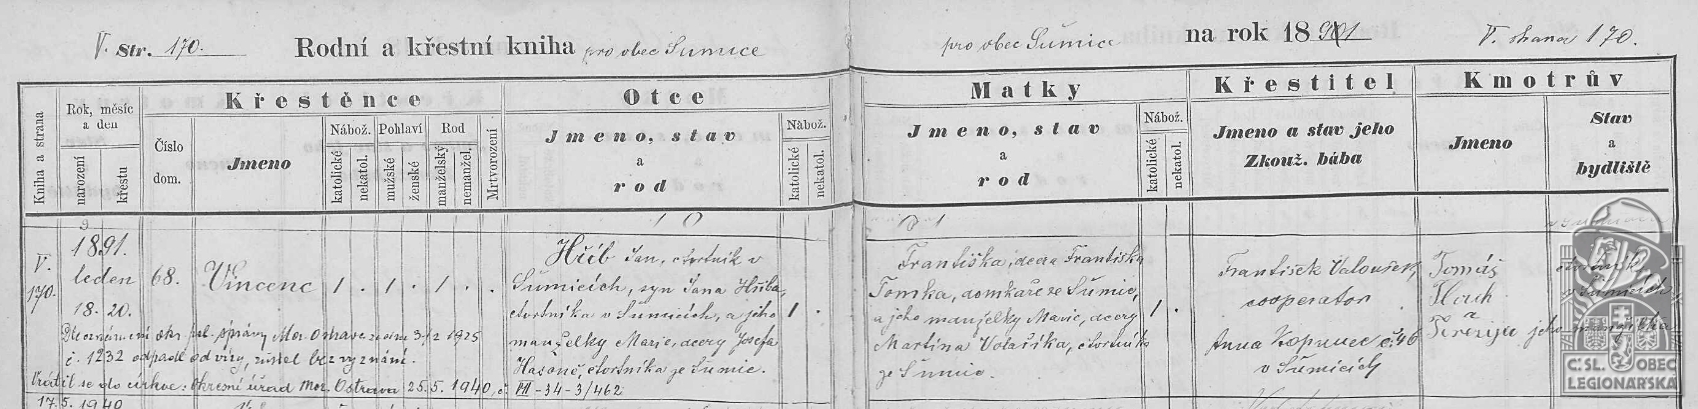 V. Str. 170. Rodní a křestní kniha pro obec Šumice
pro obec Šumice na rok 1891 V. strana 170.
Kniha a strana
Rok, měsíc a den
narození
křestu
Křestěnce
Číslo dom.
Jmeno
Nábož.
katolické
nekatol.
Pohlaví
mužské
ženské
Rod
manželský
nemanžel.
Mrtvorození
Otce
Jmeno, stav
a
rod
Nábož.
katolické
nekatol.
Matky
Jmeno, stav
a
rod
Nábož.
katolické
nekatol.
Křestitel
Jmeno a stav jeho
Zkouž. bába
Kmotrův
Jmeno
Stav
a
bydliště
V.
170.
1891.
leden
18. 20.
68.
Vincenc
1 . 1 . 1 .
Hříb Jan, čtvrtník v
Šumicích, syn Jana Hříba,
čtvrtníka v Šumicích, a jeho
manželky Marie, dcery Josefa
čtvrtníka ze Šumic.
1 .
Františka, dcera Františka
Tomka, domkáře ze Šumic,
a jeho manželky Marie, dcery
Martina Volaříka, čtvrtníka
ze Šumic.
1 .
František Valoušek,
cooperator
Anna Kopunec č. 46
v Šumicích
Tomáš
čtvrtník
v Šumicích
Terezija jeho manželka
Dle oznámení okr. pol. správy Mor. Ostrava ze dne 3./2 1925
č. 1232 odpadl od víry, zůstal bez vyznání.
Vrátil se do církve: Okresní úřad Mor. Ostrava 25. 5. 1940, č. VII-34-3/462
17. 5. 1940
ČSL. OBEC
LEGIONÁŘSKÁ